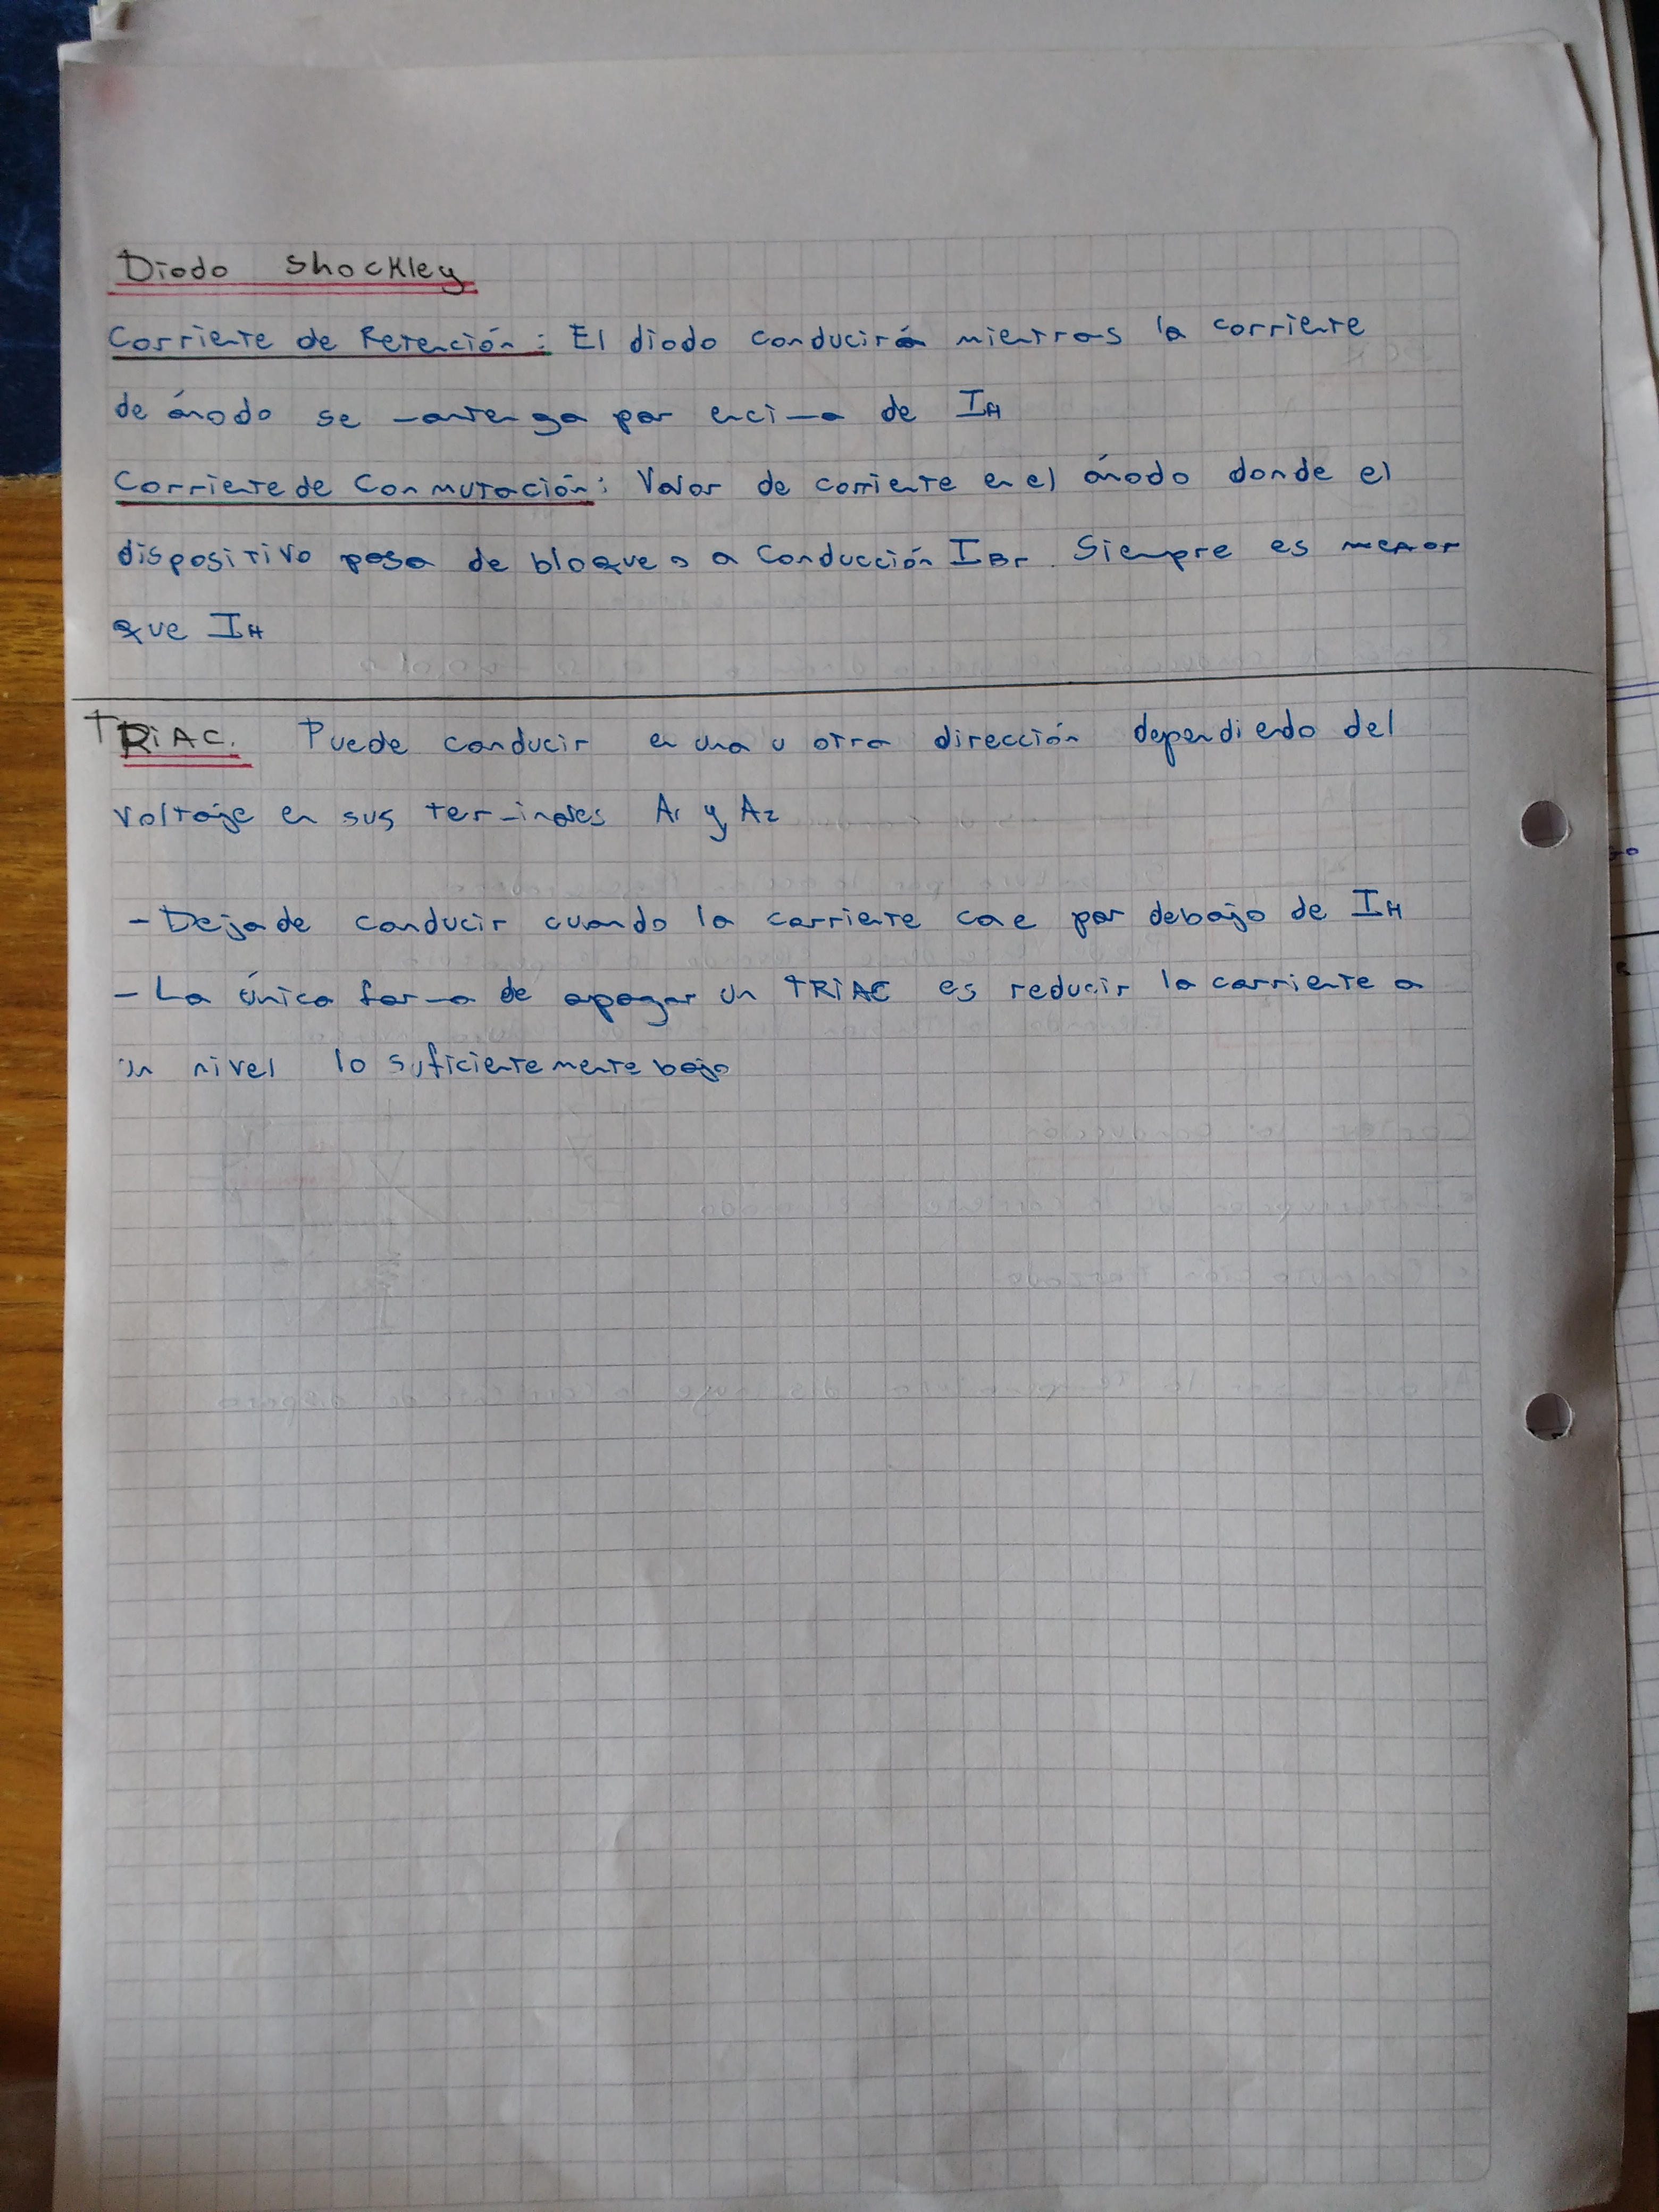 Diodo Shockley
Corriente de Retención: El diodo conducirá mientras la corriente
de ánodo se mantenga por encima de IH
Corriente de Conmutación: Valor de corriente en el ánodo donde el
dispositivo pasa de bloqueo a conducción IBr. Siempre es menor
que IH
TRIAC. Puede conducir en una u otra dirección dependiendo del
voltaje en sus terminales A1 y A2
- Deja de conducir cuando la corriente cae por debajo de IH
- La única forma de apagar un TRIAC es reducir la corriente a
un nivel lo suficientemente bajo